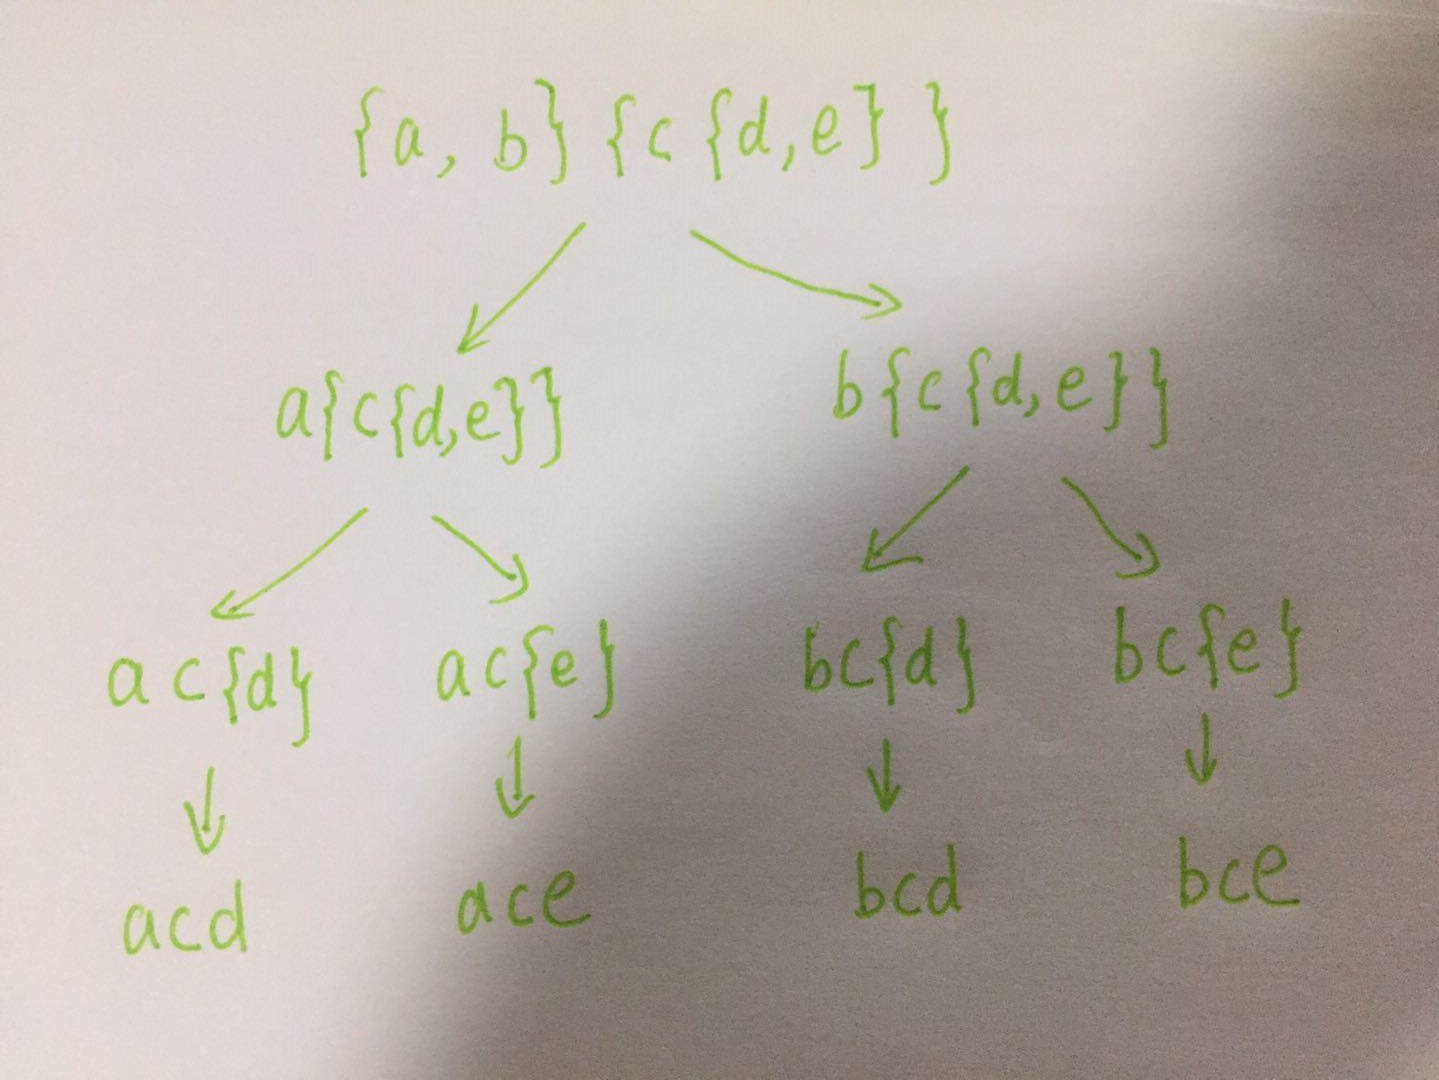 {a, b} {c {d, e} }
a{c{d,e}}
b{c{d,e}}
ac{d}
ac{e}
bc{d}
bc{e}
acd
ace
bcd
bce